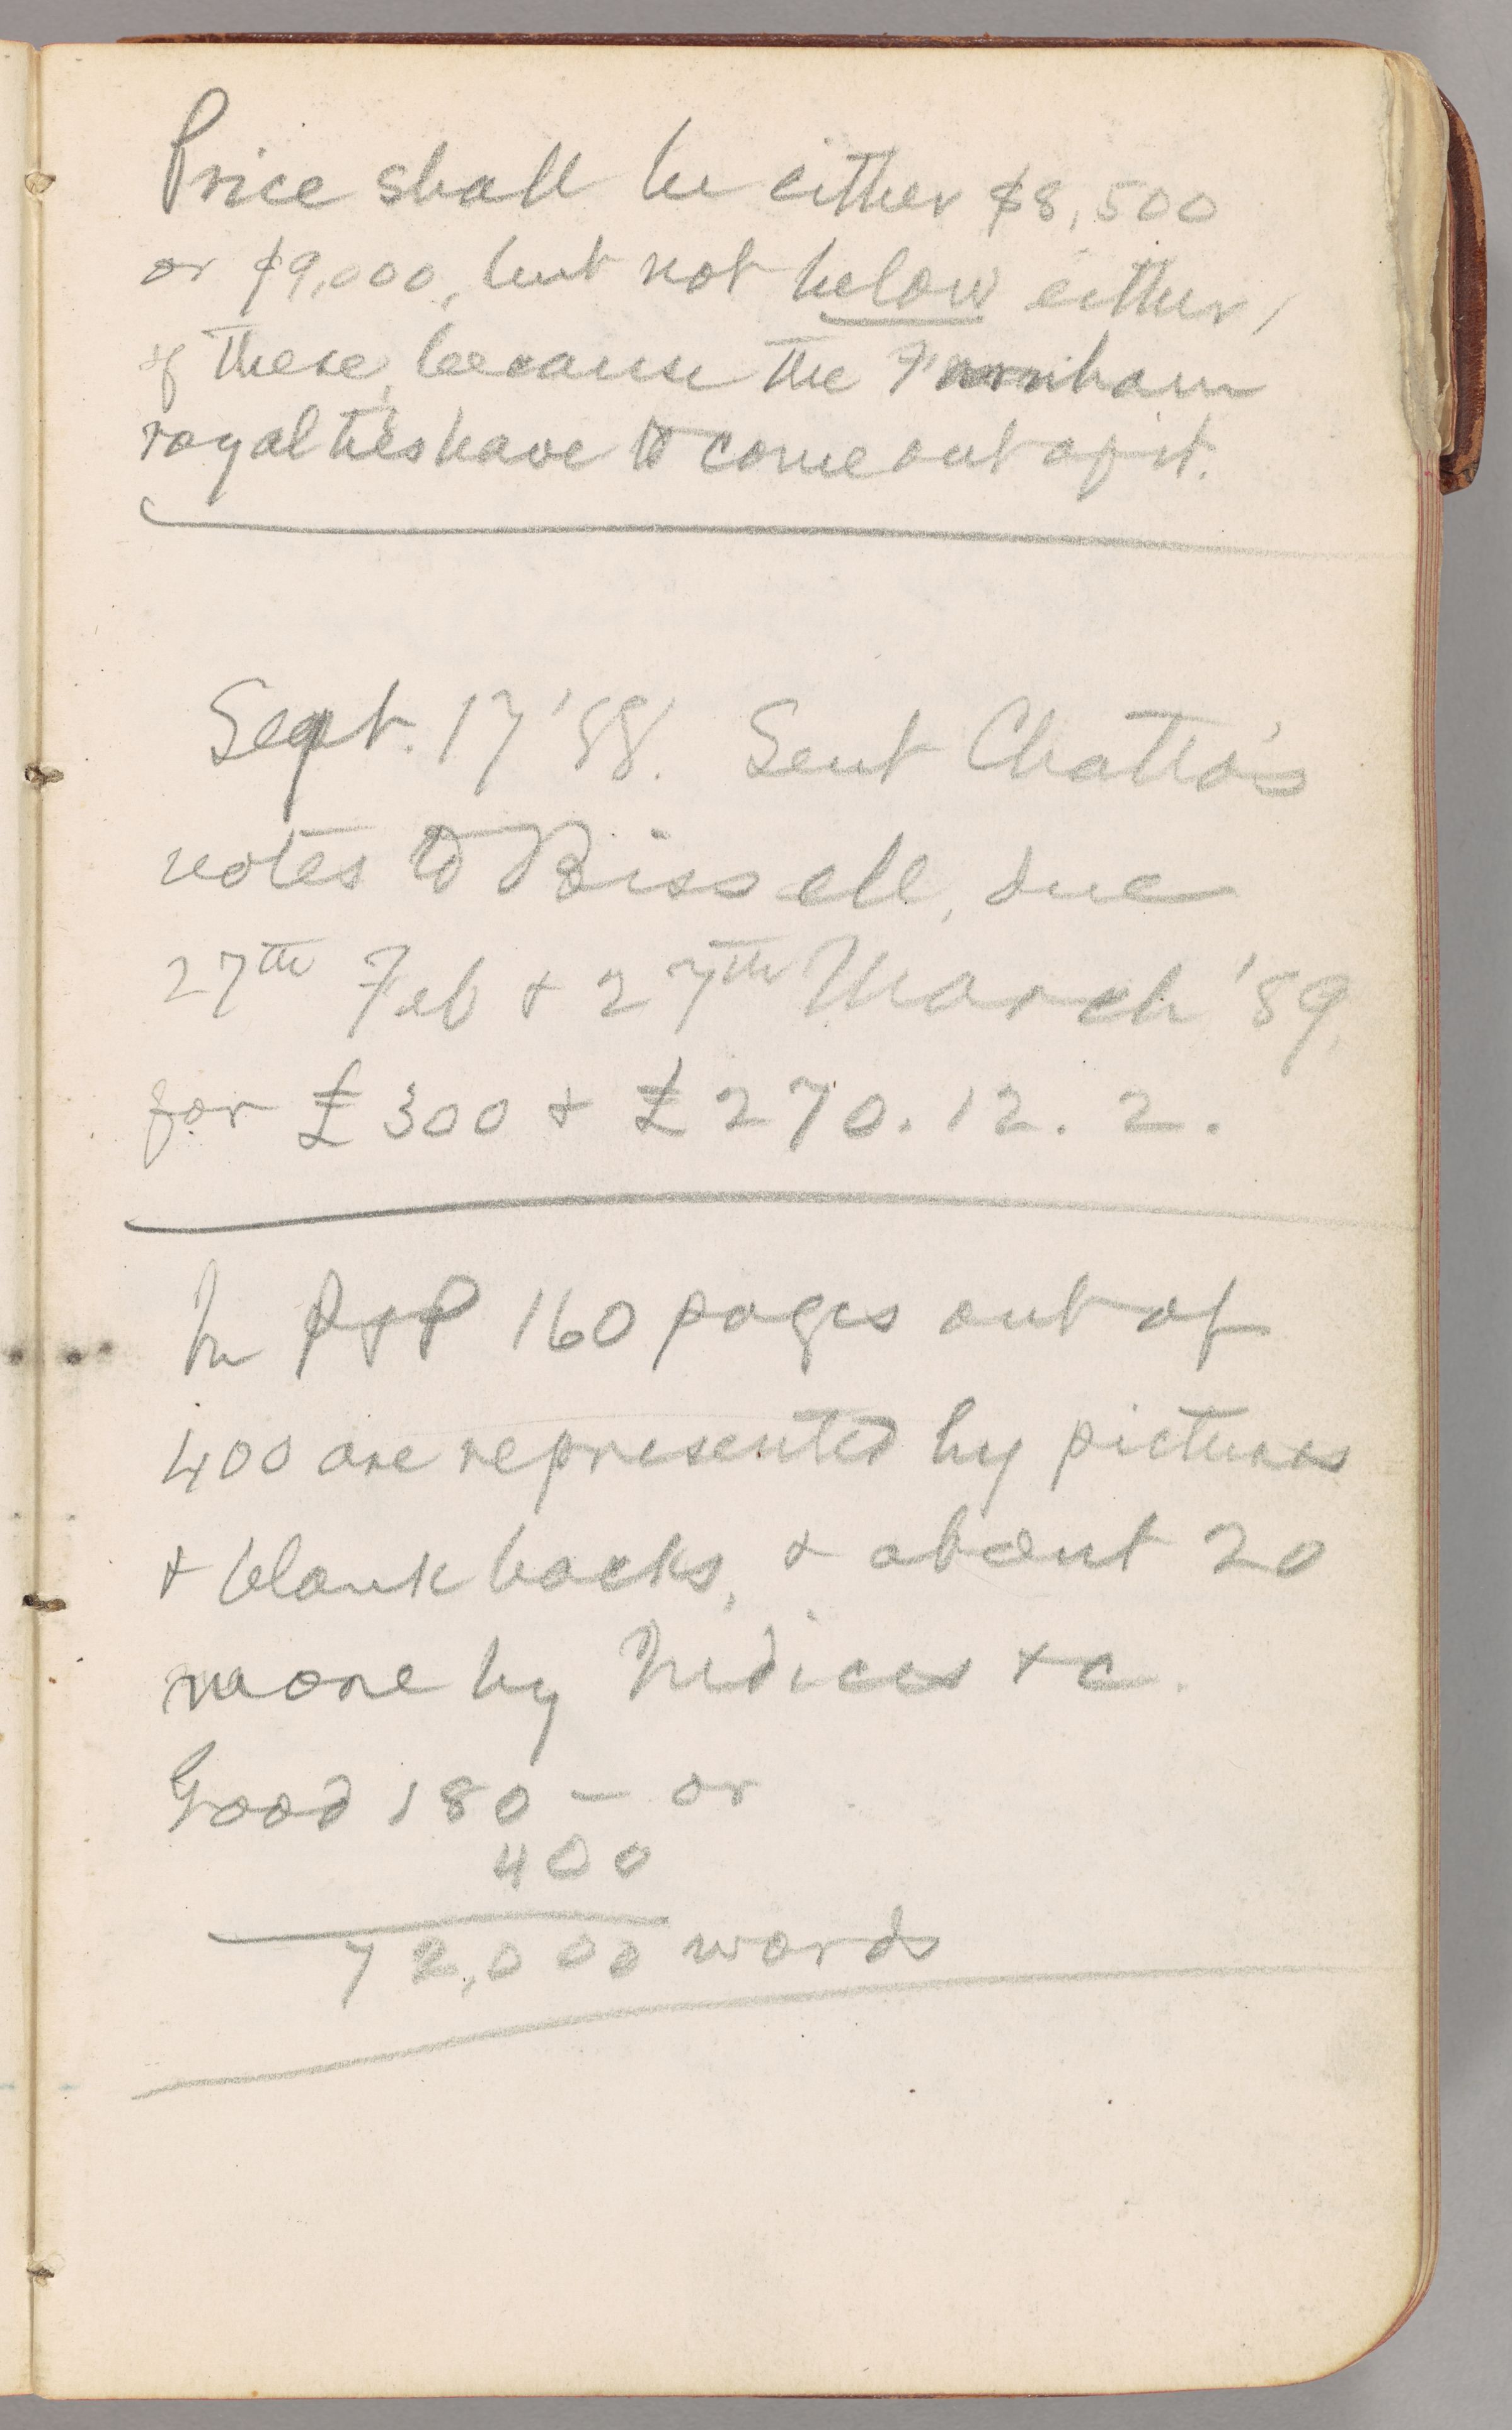 Price shall be either $8,500
or $9,000, but not below either,
of these, because the Farnham
royalties have to come out of it.
Sept. 17 '88. Sent Chatto's
notes to Bissell, due
27th Feb & 27th March '89,
for £300 & £270.12.2.
In P & P 160 pages out of
400 are represented by pictures
& blank backs, & about 20
more by Indices &c.
Good 180 — or
400
72,000 words